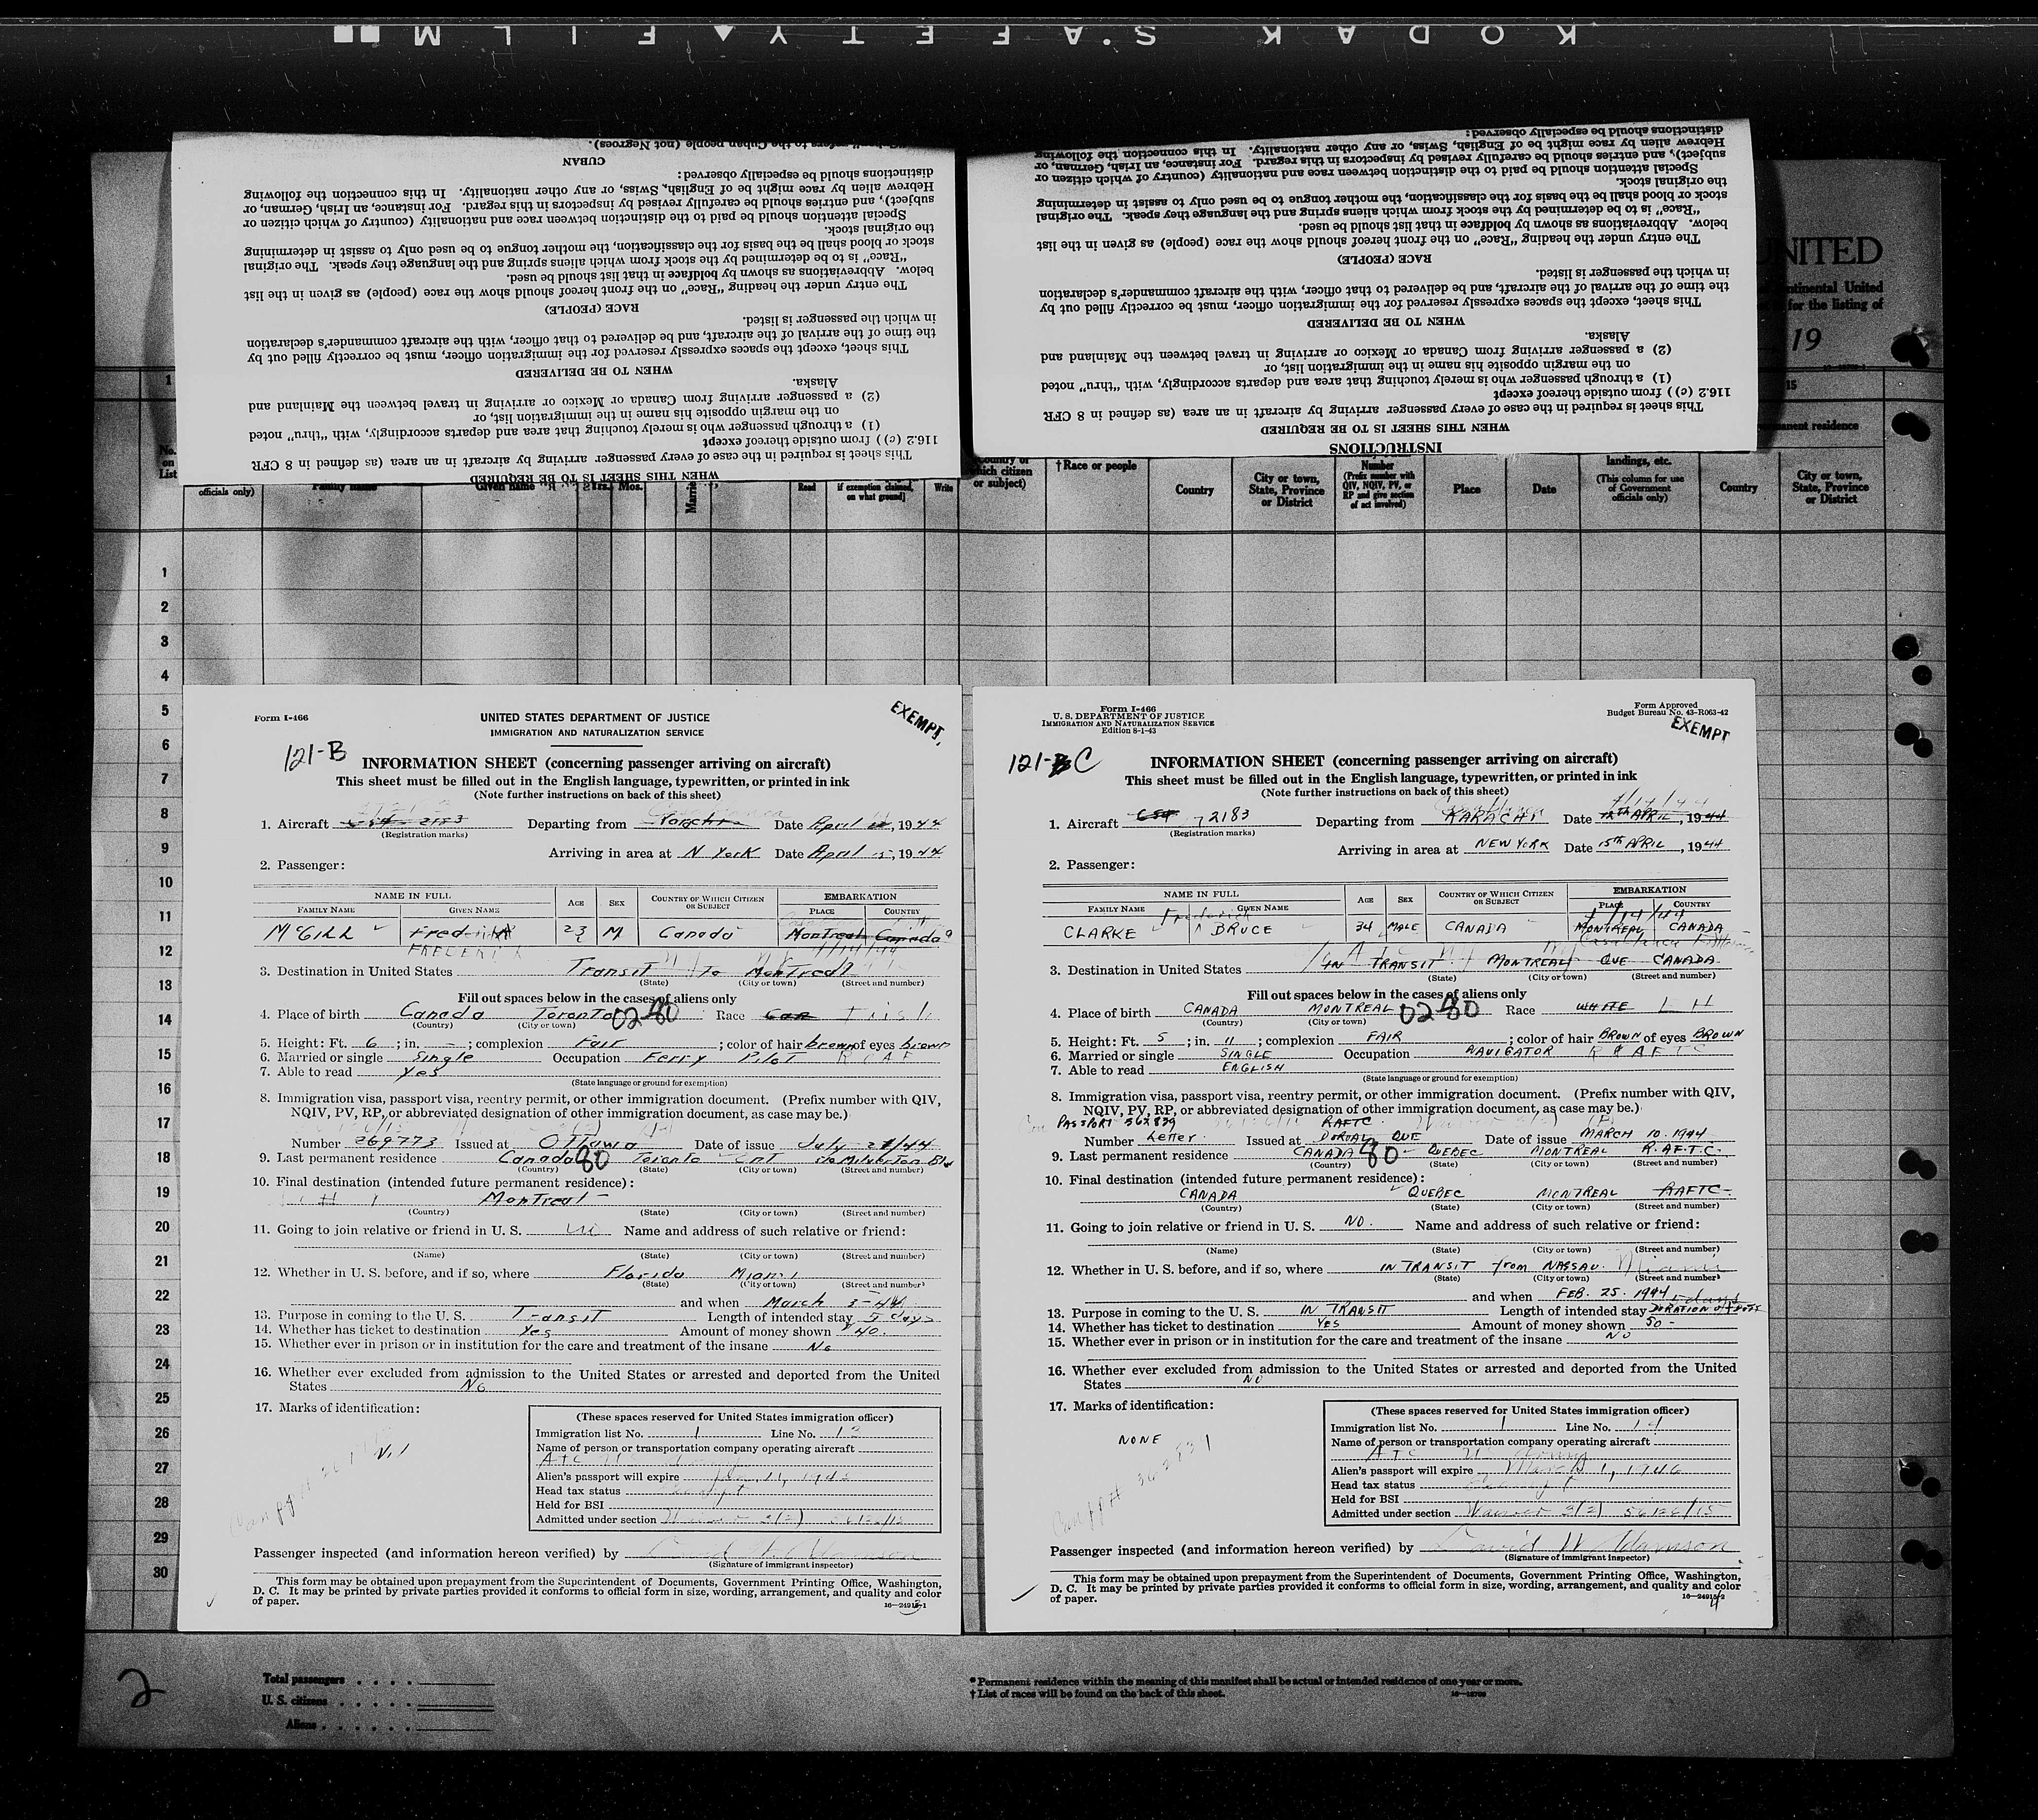 KODAK SAFETY FILM
"Cuban" refers to the Cuban people (not Negroes).
CUBAN
distinctions should be especially observed:
Hebrew alien by race might be of English, Swiss, or any other nationality. In this connection the following
subject), and entries should be carefully revised by inspectors in this regard. For instance, an Irish, German, or
Special attention should be paid to the distinction between race and nationality (country of which citizen or
the original stock.
stock or blood shall be the basis for the classification, the mother tongue to be used only to assist in determining
"Race" is to be determined by the stock from which aliens spring and the language they speak. The original
below. Abbreviations as shown by boldface in that list should be used.
The entry under the heading "Race" on the front hereof should show the race (people) as given in the list
RACE (PEOPLE)
in which the passenger is listed.
the time of the arrival of the aircraft, and be delivered to that officer, with the aircraft commander's declaration
This sheet, except the spaces expressly reserved for the immigration officer, must be correctly filled out by
WHEN TO BE DELIVERED
Alaska.
(2) a passenger arriving from Canada or Mexico or arriving in travel between the Mainland and
on the margin opposite his name in the immigration list, or
(1) a through passenger who is merely touching that area and departs accordingly, with "thru" noted
116.2 (c)) from outside thereof except
This sheet is required in the case of every passenger arriving by aircraft in an area (as defined in 8 CFR
WHEN THIS SHEET IS TO BE REQUIRED
distinctions should be especially observed:
Hebrew alien by race might be of English, Swiss, or any other nationality. In this connection the following
subject), and entries should be carefully revised by inspectors in this regard. For instance, an Irish, German, or
Special attention should be paid to the distinction between race and nationality (country of which citizen or
the original stock.
stock or blood shall be the basis for the classification, the mother tongue to be used only to assist in determining
"Race" is to be determined by the stock from which aliens spring and the language they speak. The original
below. Abbreviations as shown by boldface in that list should be used.
The entry under the heading "Race" on the front hereof should show the race (people) as given in the list
RACE (PEOPLE)
in which the passenger is listed.
the time of the arrival of the aircraft, and be delivered to that officer, with the aircraft commander's declaration
This sheet, except the spaces expressly reserved for the immigration officer, must be correctly filled out by
WHEN TO BE DELIVERED
Alaska.
(2) a passenger arriving from Canada or Mexico or arriving in travel between the Mainland and
on the margin opposite his name in the immigration list, or
(1) a through passenger who is merely touching that area and departs accordingly, with "thru" noted
116.2 (c)) from outside thereof except
This sheet is required in the case of every passenger arriving by aircraft in an area (as defined in 8 CFR
WHEN THIS SHEET IS TO BE REQUIRED
INSTRUCTIONS
UNITED
ntinental United
for the listing of
19
1
15
manent residence
No. on List
officials only)
Family name
Given name
Yrs.
Mos.
Married
Read
if exemption claimed, on what ground]
Write
Country of which citizen or subject)
†Race or people
Country
City or town, State, Province or District
Number (Prefix number with QIV, NQIV, PV, or RP and give section of act involved)
Place
Date
landings, etc. (This column for use of Government officials only)
Country
City or town, State, Province or District
1
2
3
4
5
6
7
8
9
10
11
12
13
14
15
16
17
18
19
20
21
22
23
24
25
26
27
28
29
30
Form I-466
UNITED STATES DEPARTMENT OF JUSTICE
IMMIGRATION AND NATURALIZATION SERVICE
EXEMPT.
121-B
INFORMATION SHEET (concerning passenger arriving on aircraft)
This sheet must be filled out in the English language, typewritten, or printed in ink
(Note further instructions on back of this sheet)
1. Aircraft 2183 Departing from Karachi Date April, 1944
(Registration marks)
Arriving in area at N York Date April 15, 1944
2. Passenger:
NAME IN FULL AGE SEX COUNTRY OF WHICH CITIZEN OR SUBJECT EMBARKATION
FAMILY NAME GIVEN NAME PLACE COUNTRY
McGILL Fredrik 23 M Canada Montreal Canada
3. Destination in United States Transit To Montreal
(State) (City or town) (Street and number)
Fill out spaces below in the cases of aliens only
4. Place of birth Canada Toronto 0280 Race Irish
(Country) (City or town)
5. Height: Ft. 6; in. -; complexion Fair; color of hair brown of eyes brown
6. Married or single Single Occupation Ferry Pilot RCAF
7. Able to read Yes
(State language or ground for exemption)
8. Immigration visa, passport visa, reentry permit, or other immigration document. (Prefix number with QIV,
NQIV, PV, RP, or abbreviated designation of other immigration document, as case may be.)
Number 269773 Issued at Ottawa Date of issue July
9. Last permanent residence Canada 80 Toronto ONT
(Country) (State) (City or town) (Street and number)
10. Final destination (intended future permanent residence):
Montreal
(Country) (State) (City or town) (Street and number)
11. Going to join relative or friend in U. S. Name and address of such relative or friend:
(Name) (State) (City or town) (Street and number)
12. Whether in U. S. before, and if so, where Florida Miami
(State) (City or town) (Street and number)
and when March 3-44
13. Purpose in coming to the U. S. Transit Length of intended stay 5 days
14. Whether has ticket to destination Yes Amount of money shown $40.
15. Whether ever in prison or in institution for the care and treatment of the insane No
16. Whether ever excluded from admission to the United States or arrested and deported from the United
States No
17. Marks of identification:
Nil
(These spaces reserved for United States immigration officer)
Immigration list No. 1 Line No. 13
Name of person or transportation company operating aircraft
ATC US Army
Alien's passport will expire
Head tax status Exempt
Held for BSI
Admitted under section
Passenger inspected (and information hereon verified) by David W. Adamson
(Signature of immigrant inspector)
This form may be obtained upon prepayment from the Superintendent of Documents, Government Printing Office, Washington,
D. C. It may be printed by private parties provided it conforms to official form in size, wording, arrangement, and quality and color
of paper.
16—24915-1
3
Form I-466
U. S. DEPARTMENT OF JUSTICE
IMMIGRATION AND NATURALIZATION SERVICE
Edition 8-1-43
Form Approved
Budget Bureau No. 43-R063-42
EXEMPT
121-C
INFORMATION SHEET (concerning passenger arriving on aircraft)
This sheet must be filled out in the English language, typewritten, or printed in ink
(Note further instructions on back of this sheet)
1. Aircraft C54 72183 Departing from KARACHI Date 12th APRIL, 1944
(Registration marks)
Casablanca
Arriving in area at NEW YORK Date 15th APRIL, 1944
2. Passenger:
NAME IN FULL AGE SEX COUNTRY OF WHICH CITIZEN OR SUBJECT EMBARKATION
FAMILY NAME GIVEN NAME PLACE COUNTRY
Frederick
CLARKE BRUCE 34 MALE CANADA MONTREAL CANADA
3. Destination in United States IN TRANSIT MONTREAL QUE CANADA
(State) (City or town) (Street and number)
Fill out spaces below in the cases of aliens only
4. Place of birth CANADA MONTREAL 0280 Race WHITE
(Country) (City or town)
5. Height: Ft. 5; in. 11; complexion FAIR; color of hair BROWN of eyes BROWN
6. Married or single SINGLE Occupation NAVIGATOR
7. Able to read ENGLISH
(State language or ground for exemption)
8. Immigration visa, passport visa, reentry permit, or other immigration document. (Prefix number with QIV,
NQIV, PV, RP, or abbreviated designation of other immigration document, as case may be.)
PASSPORT 362839 RAFTC
Number Letter Issued at DORVAL QUE Date of issue MARCH 10. 1944
9. Last permanent residence CANADA 80 QUEBEC MONTREAL R.A.F.T.C.
(Country) (State) (City or town) (Street and number)
10. Final destination (intended future permanent residence):
CANADA QUEBEC MONTREAL RAFTC
(Country) (State) (City or town) (Street and number)
11. Going to join relative or friend in U. S. NO. Name and address of such relative or friend:
(Name) (State) (City or town) (Street and number)
12. Whether in U. S. before, and if so, where IN TRANSIT from NASSAU. Miami
(State) (City or town) (Street and number)
and when FEB. 25. 1944
13. Purpose in coming to the U. S. IN TRANSIT Length of intended stay DURATION OF
14. Whether has ticket to destination YES Amount of money shown 50-
15. Whether ever in prison or in institution for the care and treatment of the insane NO
16. Whether ever excluded from admission to the United States or arrested and deported from the United
States NO
17. Marks of identification:
NONE
(These spaces reserved for United States immigration officer)
Immigration list No. 1 Line No. 14
Name of person or transportation company operating aircraft
ATC US Army
Alien's passport will expire March 1, 1946
Head tax status Exempt
Held for BSI
Admitted under section
Passenger inspected (and information hereon verified) by David W Adamson
(Signature of immigrant inspector)
This form may be obtained upon prepayment from the Superintendent of Documents, Government Printing Office, Washington,
D. C. It may be printed by private parties provided it conforms to official form in size, wording, arrangement, and quality and color
of paper.
16—24915-2
4
2
Total passengers
U. S. citizens
Aliens
* Permanent residence within the meaning of this manifest shall be actual or intended residence of one year or more.
† List of races will be found on the back of this sheet.